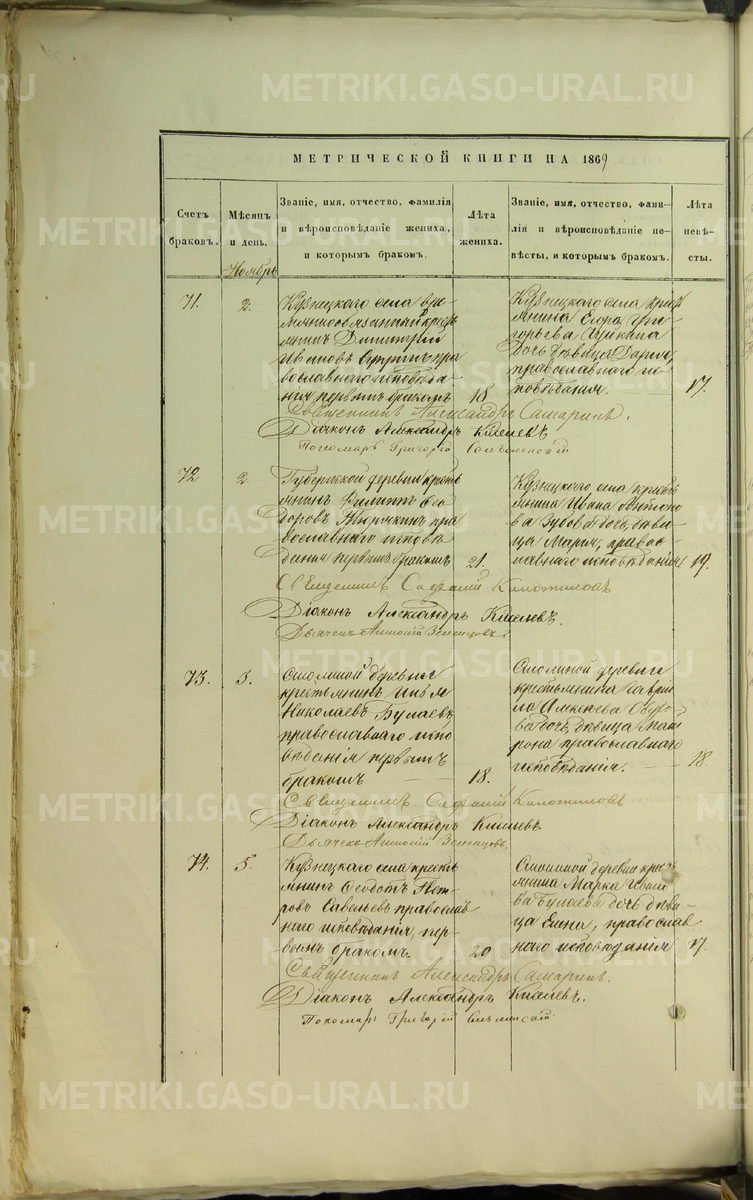 METRIKI.GASO-URAL.RU
МЕТРИЧЕСКОЙ КНИГИ НА 1869
Счетъ браковъ.
Мѣсяцъ и день.
Званіе, имя, отчество, фамилія и вѣроисповѣданіе жениха, и которымъ бракомъ.
Лѣта жениха.
Званіе, имя, отчество, фамилія и вѣроисповѣданіе невѣсты, и которымъ бракомъ.
Лѣта невѣсты.
Ноябрь
71.
2.
Кузнецкаго села вре-
менно обязанный кресть
янинъ Димитрій
Ивановъ пра
вославнаго исповѣда-
нія первымъ бракомъ
18
Кузнецкаго села крест
янина Егора Григ
орьева
дочь дѣвица Дарья,
православнаго ис-
повѣданія.
17.
Священникъ Александръ Самаринъ.
Діаконъ Александръ Киселевъ
Пономарь Григорій
72
2.
деревни кресть
янинъ Филиппъ Ѳео
доровъ пра
вославнаго исповѣ
данія первымъ бракомъ
21.
Кузнецкаго села кресть
янина Ивана Антоно
ва Зубова дочь, дѣви-
ца Марья, правос-
лавнаго исповѣданія
19.
Священникъ
Діаконъ Александръ Киселевъ.
Дьячекъ Антоній
73.
5.
Смолиной деревни
крестьянинъ Илья
Николаевъ Булаевъ
православнаго испо
вѣданія первымъ
бракомъ
18.
Смолиной деревни
крестьянина Гаврі
ло Алексѣева
ва дочь, дѣвица Мат
рона православнаго
исповѣданія.
18
Священникъ
Діаконъ Александръ Киселевъ.
Дьячекъ Антоній
74.
5.
Кузнецкаго села кресть
янинъ Ѳеодотъ Пет-
ровъ Савельевъ православ
наго исповѣданія, пер-
вымъ бракомъ.
20
Смолиной деревни крест
янина Марка Ивано
ва Булаева дочь дѣви-
ца Елена, православ
наго исповѣданія
17.
Священникъ Александръ Самаринъ.
Діаконъ Александръ Киселевъ.
Пономарь Григорій